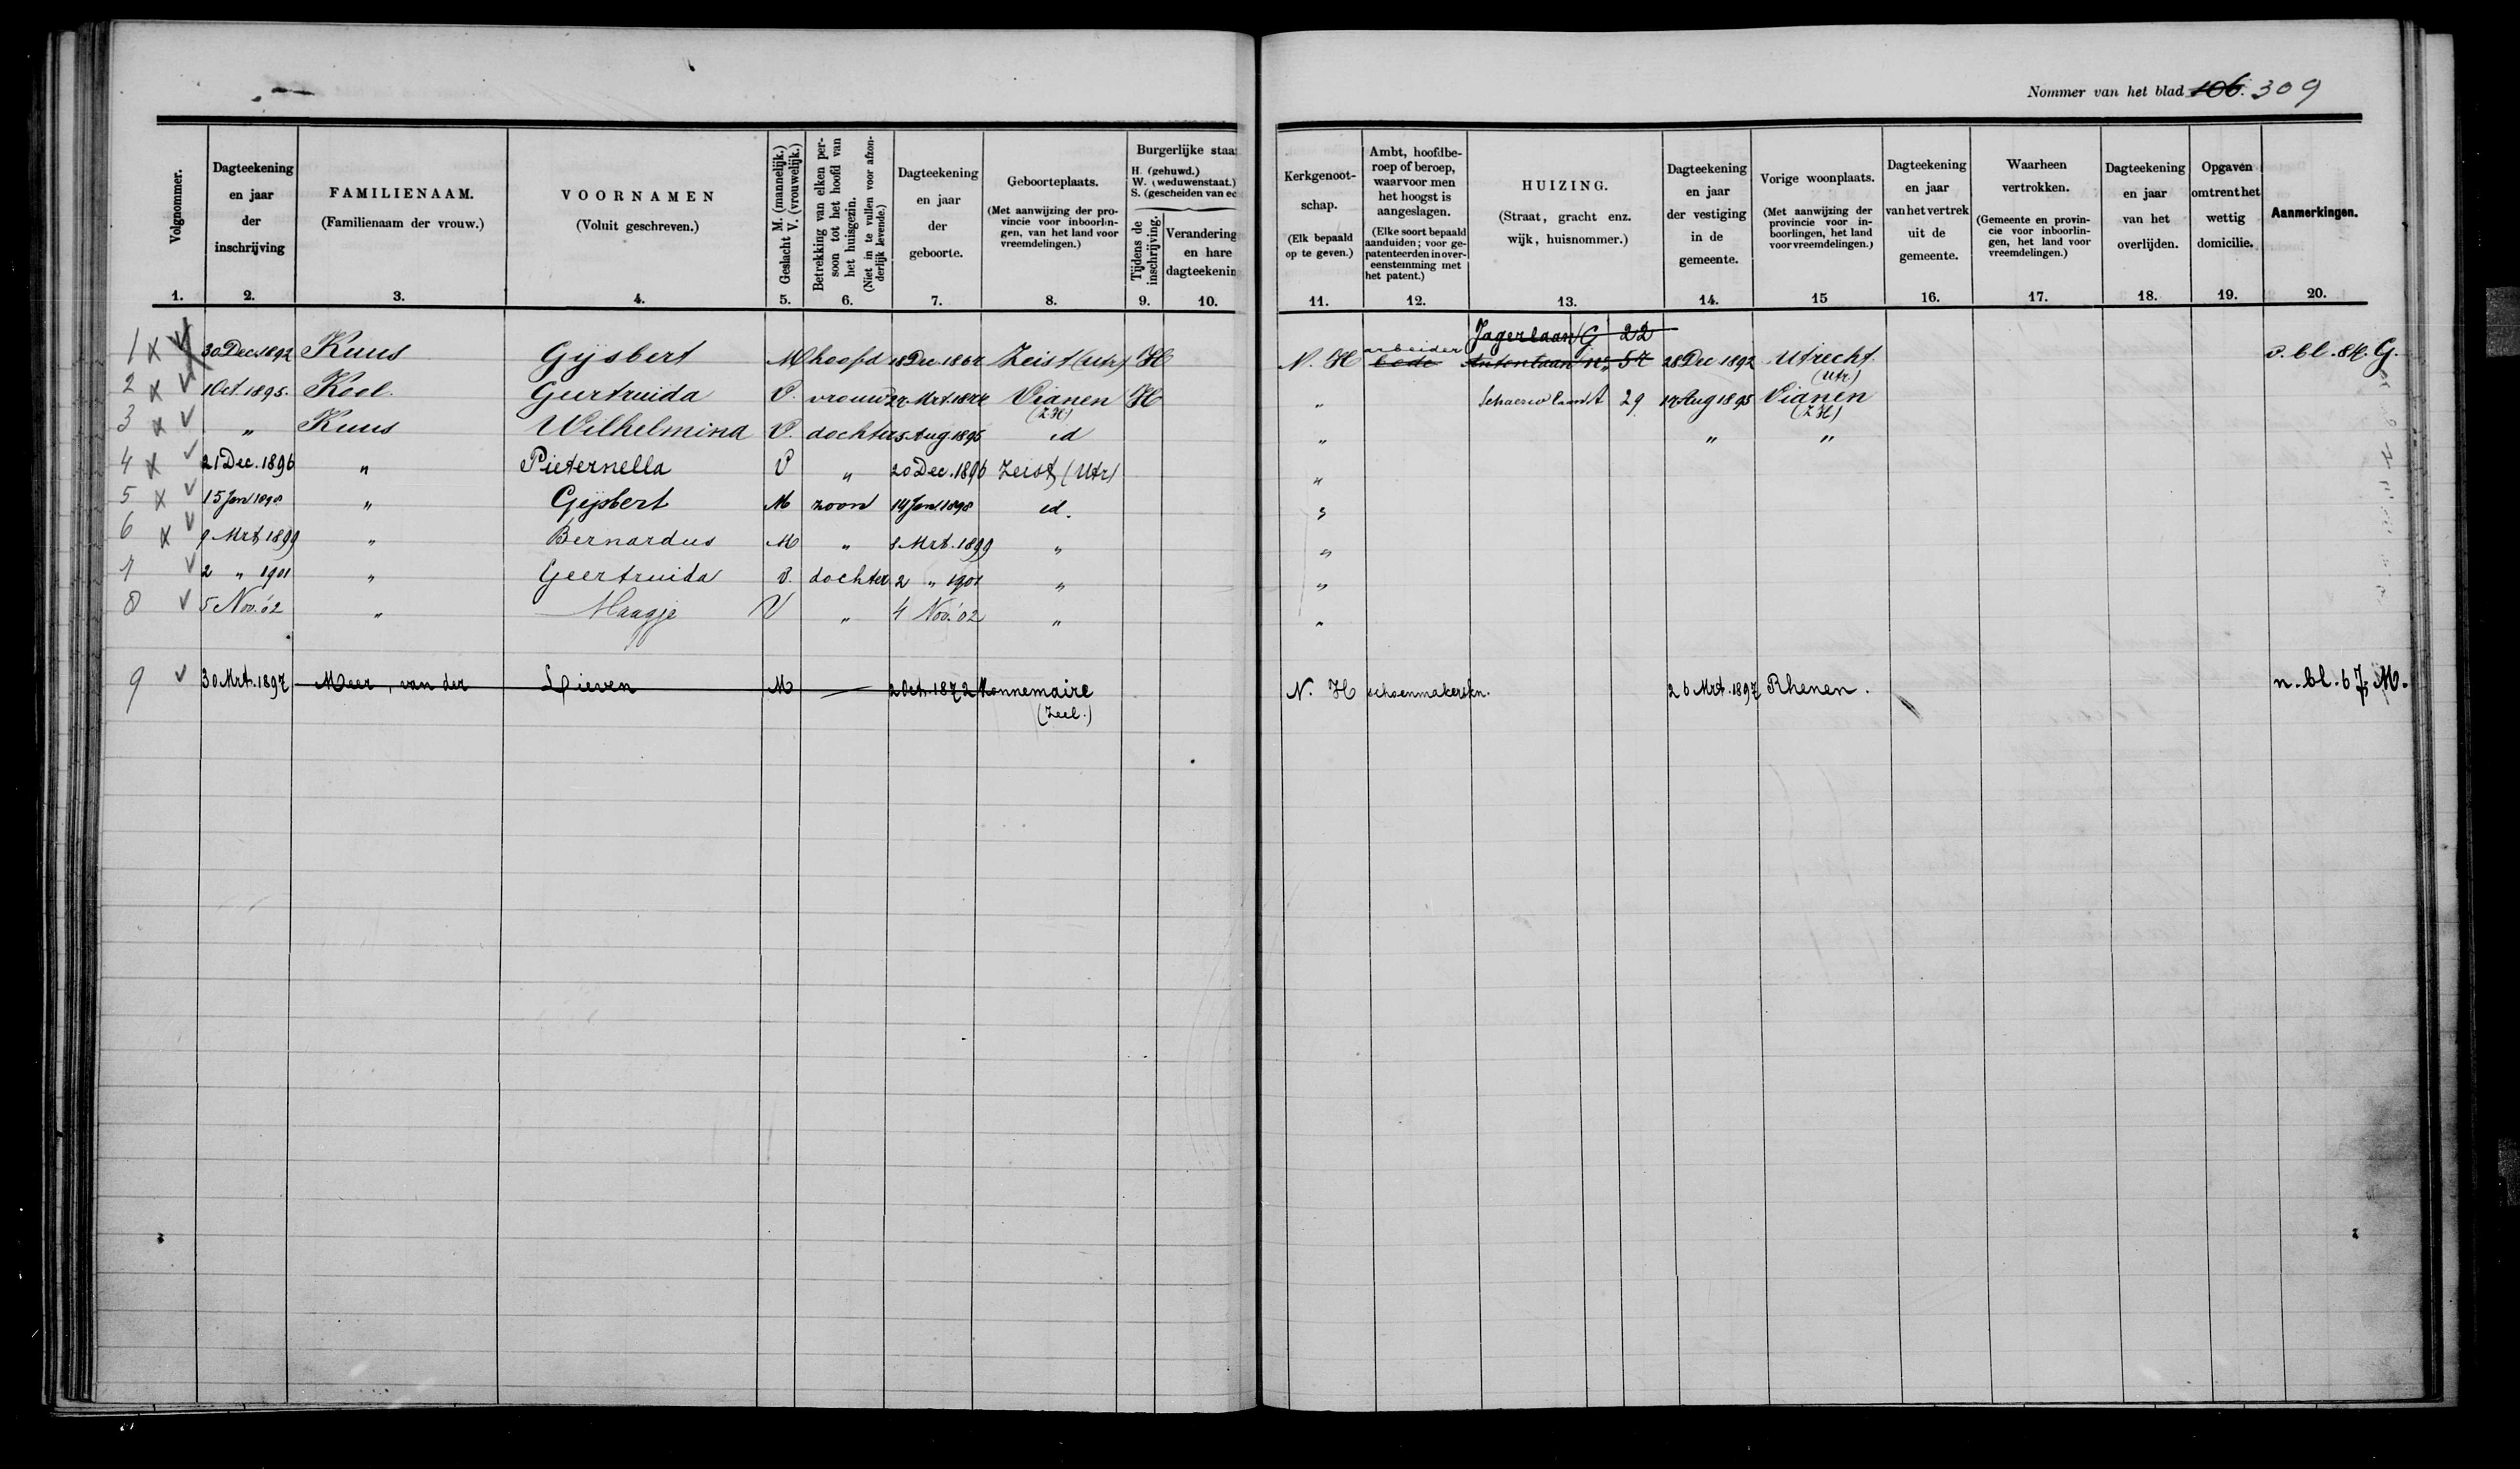 Nommer van het blad 106. 309
Volgnommer. 1.
Dagteekening en jaar der inschrijving 2.
FAMILIENAAM. (Familienaam der vrouw.) 3.
VOORNAMEN (Voluit geschreven.) 4.
Geslacht M. (mannelijk.) V. (vrouwelijk.) 5.
Betrekking van elken persoon tot het hoofd van het huisgezin. (Niet in te vullen voor afzonderlijk levende.) 6.
Dagteekening en jaar der geboorte. 7.
Geboorteplaats. (Met aanwijzing der provincie voor inboorlingen, van het land voor vreemdelingen.) 8.
Burgerlijke staa
H. (gehuwd.)
W. (weduwenstaat.)
S. (gescheiden van ec
Tijdens de inschrijving. 9.
Verandering en hare dagteekenin 10.
Kerkgenootschap. (Elk bepaald op te geven.) 11.
Ambt, hoofdberoep of beroep, waarvoor men het hoogst is aangeslagen. (Elke soort bepaald aanduiden; voor gepatenteerden in overeenstemming met het patent.) 12.
HUIZING. (Straat, gracht enz. wijk, huisnommer.) 13.
Dagteekening en jaar der vestiging in de gemeente. 14.
Vorige woonplaats. (Met aanwijzing der provincie voor inboorlingen, het land voor vreemdelingen.) 15
Dagteekening en jaar van het vertrek uit de gemeente. 16.
Waarheen vertrokken. (Gemeente en provincie voor inboorlingen, het land voor vreemdelingen.) 17.
Dagteekening en jaar van het overlijden. 18.
Opgaven omtrent het wettig domicilie. 19.
Aanmerkingen. 20.
Jagerlaan G 22
1 x V 30 Dec 1892 Kuus Gijsbert M hoofd 18 Dec 1867 Zeist (Utr) H N. H arbeider bode Antonlaan 57 28 Dec 1892 Utrecht (Utr.) v. bl. 84. G.
2 x V 1 Oct. 1895. Kool. Geertruida V. vrouw Mrt. Vianen (ZH) H „ A 29 Aug 1895 Vianen (ZH)
3 x V „ Kuus Wilhelmina V. dochter Aug. 1895 id „ „ „
4 x V 21 Dec. 1896 „ Pieternella V „ 20 Dec. 1896 Zeist (Utr) „
5 x V 15 Jan 1898 „ Gijsbert M zoon 14 Jan 1898 id. „
6 x V 9 Mrt 1899 „ Bernardus M „ 8 Mrt. 1899 „ „
7 V 2 „ 1901 „ Geertruida V. dochter 2 „ 1901 „ „
8 V 5 Nov. '02 „ Maagje V „ 4 Nov. '02 „ „
9 V 30 Mrt. 1897 Meer, van der Lieven M — 2 Oct. 1872 Nonnemaire (Zeel.) N. H schoenmakerskn. 26 Mrt. 1897 Rhenen. n. bl. 67, M.